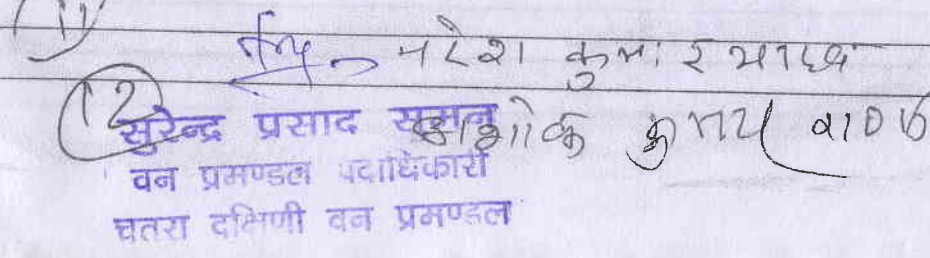 (11) नरेश कुमार यादव
(12) अशोक कुमार
सुरेन्द्र प्रसाद सुमन
वन प्रमण्डल पदाधिकारी
चतरा दक्षिणी वन प्रमण्डल